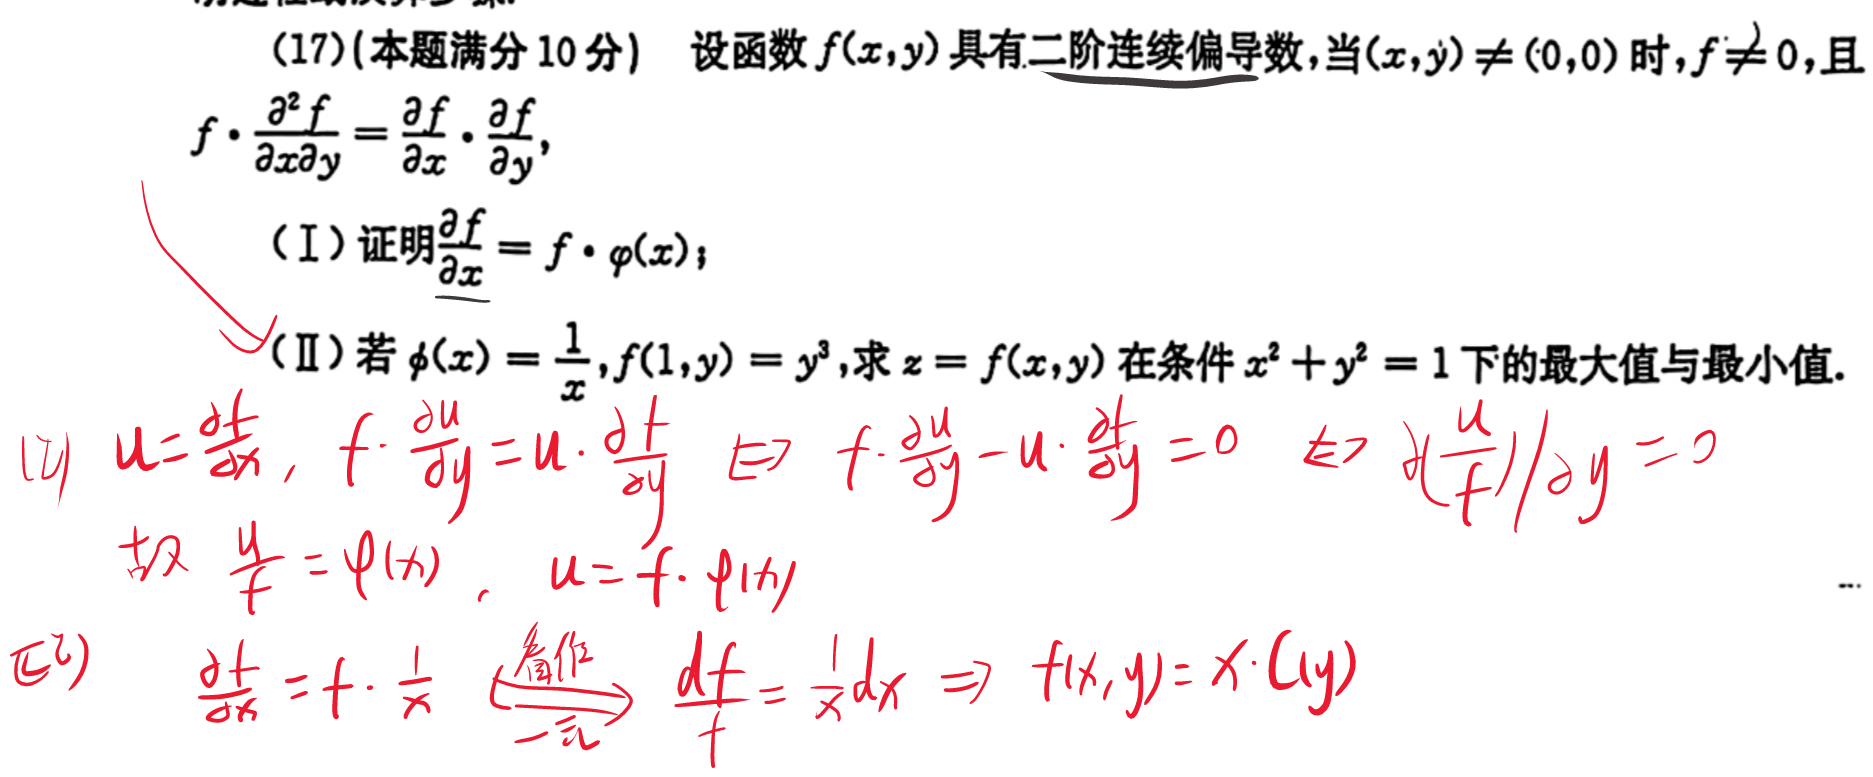 (17)(本题满分 10 分) 设函数 f(x,y) 具有二阶连续偏导数,当(x,y) ≠ (0,0) 时,f ≠ 0,且
f · ∂²f/∂x∂y = ∂f/∂x · ∂f/∂y,
(Ⅰ) 证明 ∂f/∂x = f · φ(x);
(Ⅱ) 若 ϕ(x) = 1/x, f(1,y) = y³,求 z = f(x,y) 在条件 x² + y² = 1 下的最大值与最小值.
u = ∂f/∂x, f · ∂u/∂y = u · ∂f/∂y ⇔ f · ∂u/∂y − u · ∂f/∂y = 0 ⇔ ∂(u/f)/∂y = 0
故 u/f = φ(x), u = f · φ(x)
∂f/∂x = f · 1/x 看作 一元 df/f = 1/x dx ⇒ f(x,y) = x · C(y)